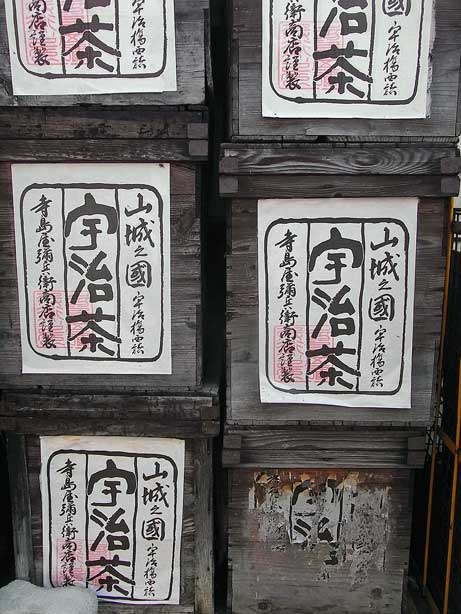 宇治橋西詰
茶
店謹製
國 宇治橋西詰
治茶
衛商店謹製
山城之國 宇治橋西詰
宇治茶
寺島屋彌兵衛商店謹製
山城之國 宇治橋西詰
宇治茶
寺島屋彌兵衛商店謹製
山城之國 宇治橋西詰
宇治茶
寺島屋彌兵衛商店
治